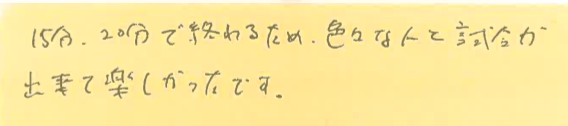 15分、20分で終わるため、色々な人と試合が
出来て楽しかったです。